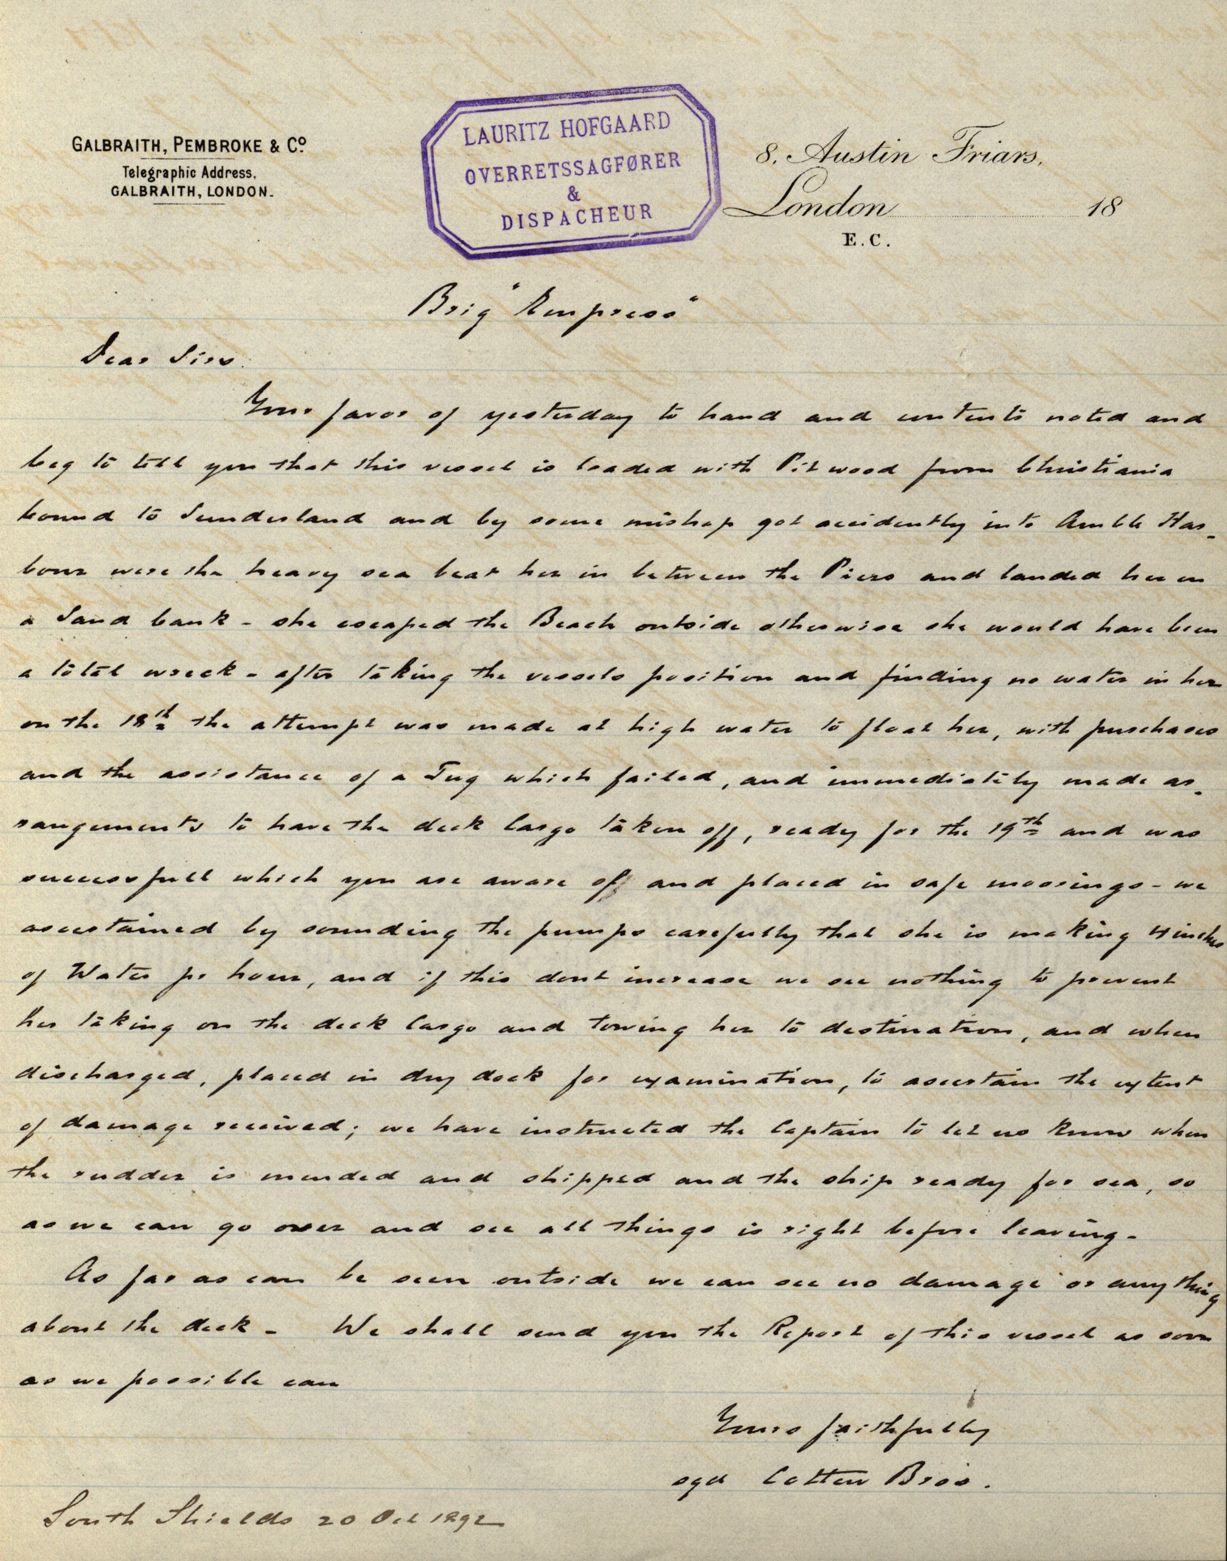 GALBRAITH, PEMBROKE & Co.
Telegraphic Address.
GALBRAITH, LONDON.
LAURITZ HOFGAARD
OVERRETSSAGFØRER
&
DISPACHEUR
8, Austin Friars,
London 18
E.C.
Brig "Empress"
Dear Sirs.
Your favor of yesterday to hand and contents noted and
beg to tell you that this vessel is loaded with Pit wood from Christiania
bound to Sunderland and by some mishap got accidently into Amble Har-
bour were the heavy sea beat her in between the Piers and landed her on
a Sand bank - she escaped the Beach outside otherwise she would have been
a total wreck - after taking the vessels position and finding no water in her
on the 18th the attempt was made at high water to float her, with purchases
and the assistance of a Tug which failed, and immediately made ar-
rangements to have the deck Cargo taken off, ready for the 19th and was
successfull which you are aware of and placed in safe moorings - we
ascertained by sounding the pumps carefully that she is making 4 inches
of Water pr hour, and if this dont increase we see nothing to prevent
her taking on the deck Cargo and towing her to destination, and when
discharged, placed in dry dock for examination, to ascertain the extent
of damage received; we have instructed the Captain to let us know when
the rudder is mended and shipped and the ship ready for sea, so
as we can go over and see all things is right before leaving -
As far as can be seen outside we can see no damage or anything
about the deck - We shall send you the Report of this vessel as soon
as we possible can
Yours faithfully
sgd Cotten Bros.
South Shields 20 Oct 1892